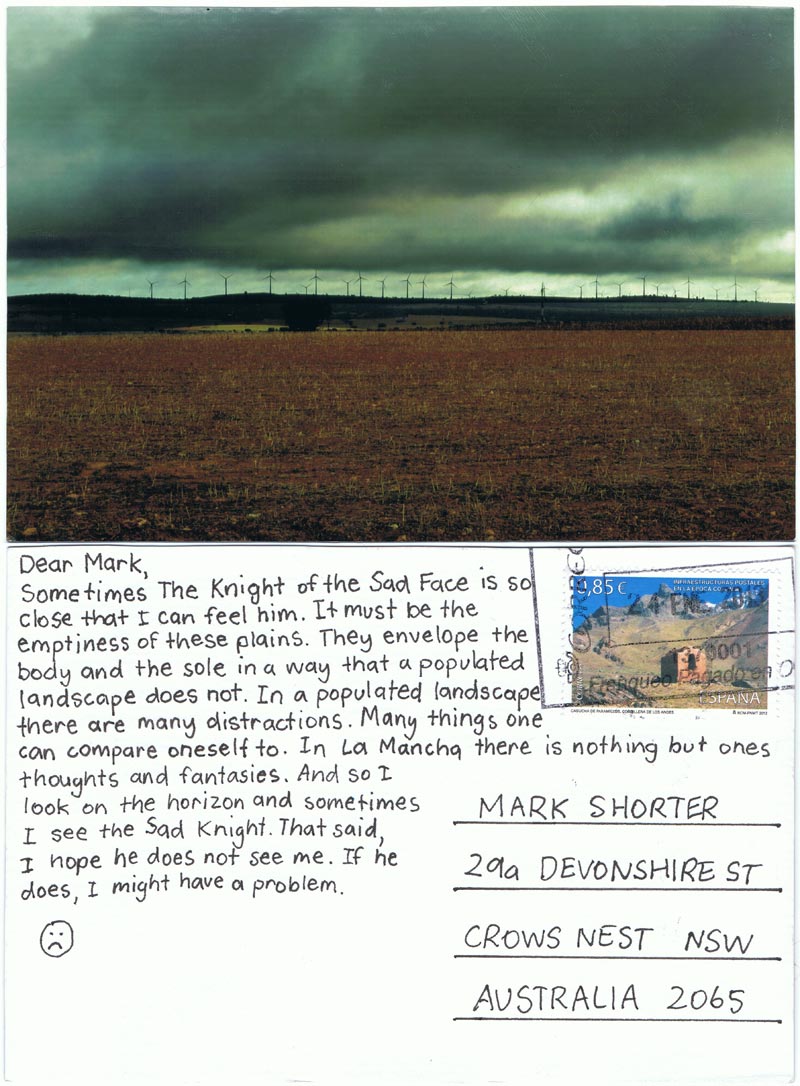 Dear Mark,
Sometimes The Knight of the Sad Face is so
close that I can feel him. It must be the
emptiness of these plains. They envelope the
body and the sole in a way that a populated
landscape does not. In a populated landscape
there are many distractions. Many things one
can compare oneself to. In La Mancha there is nothing but ones
thoughts and fantasies. And so I
look on the horizon and sometimes
I see the Sad Knight. That said,
I hope he does not see me. If he
does, I might have a problem.
0,85 €
INFRAESTRUCTURAS POSTALES
EN LA ÉPOCA
24 EN
Franqueo Pagado en
ESPAÑA
CASUCHA DE PARAMILLOS, CORDILLERA DE LOS ANDES
MARK SHORTER
29a DEVONSHIRE ST
CROWS NEST NSW
AUSTRALIA 2065